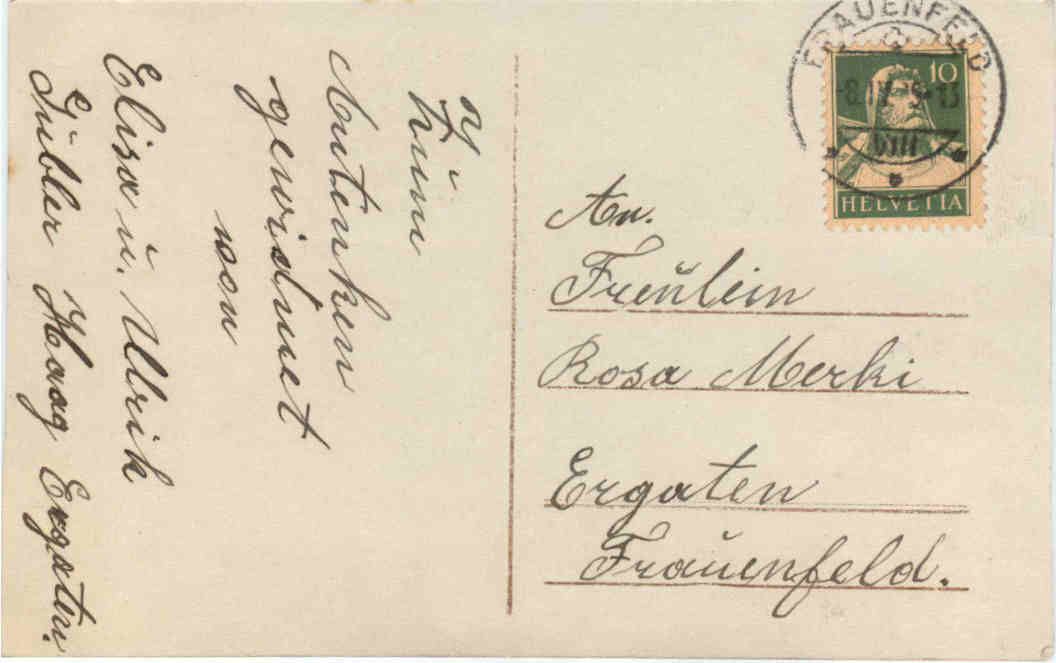 Zum
Antenken
gewidmet
von
Elisa u. Ulrik
Gubler Haag Ergaten.
FRAUENFELD
VIII
10
HELVETIA
An.
Freulein
Rosa Merki
Ergaten
Frauenfeld.